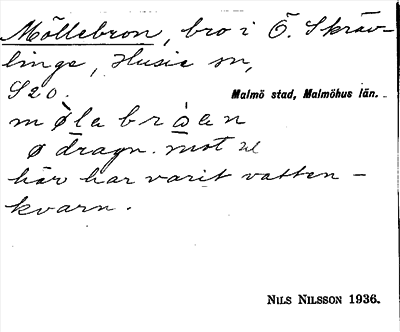 Möllebron, bro i Ö. Skräv-
linge, Husie sn,
S20.
Malmö stad, Malmöhus län.
mø̀la bråan
ø dragn. mot œ
här har varit vatten-
kvarn.
NILS NILSSON 1936.